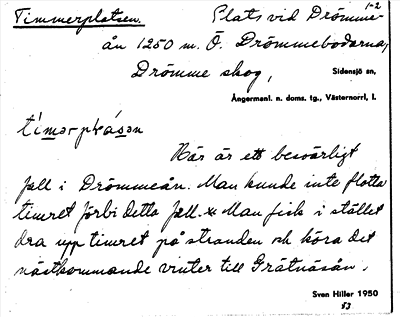 Timmerplatsen. Plats vid Drömme- 1-2
ån 1250 m. Ö. Drömmebodarna,
Drömme skog, Sidensjö sn,
Ångermanl. n. doms. tg., Västernorrl. l.
tímərpḷásən
Här är ett besvärligt
fall i Drömmeån. Man kunde inte flotta
timret förbi detta fall. Man fick i stället
dra upp timret på stranden och köra det
nästkommande vinter till Grätnäsån.
Sven Hiller 1950
53